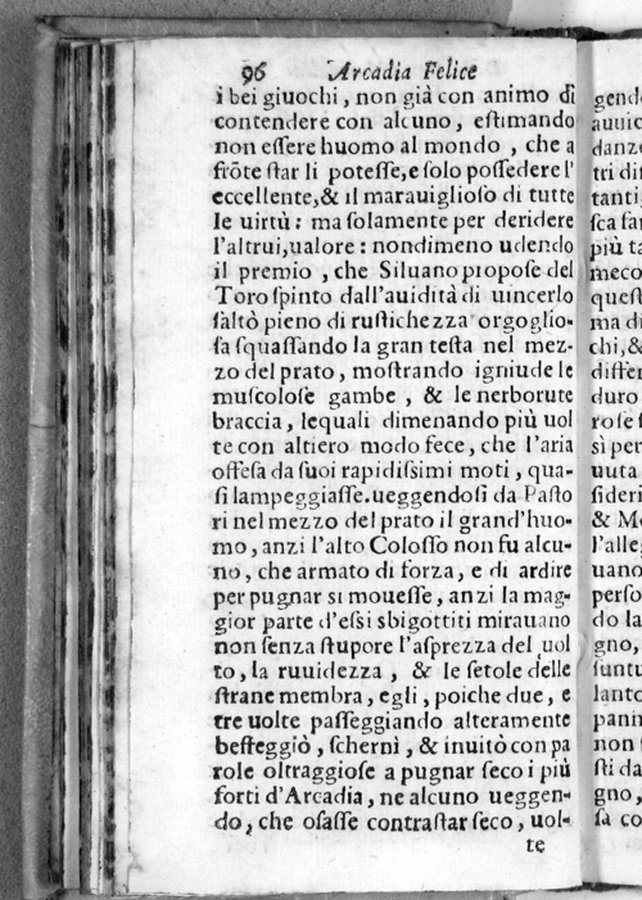 96 Arcadia Felice
i bei giuochi, non già con animo di
contendere con alcuno, eſtimando
non eſſere huomo al mondo, che a
frõte ſtar li poteſſe, e ſolo poſſedere l'
eccellente, & il marauiglioſo di tutte
le uirtù: ma ſolamente per deridere
l'altrui, ualore: nondimeno udendo
il premio, che Siluano propoſe del
Toro ſpinto dall'auidità di uincerlo
ſaltò pieno di ruſtichezza orgoglio-
ſa ſquaſſando la gran teſta nel mez-
zo del prato, moſtrando igniude le
muſcoloſe gambe, & le nerborute
braccia, lequali dimenando più uol
te con altiero modo fece, che l'aria
offeſa da ſuoi rapidiſsimi moti, qua-
ſi lampeggiaſſe. ueggendoſi da Paſto
ri nel mezzo del prato il grand'huo-
mo, anzi l'alto Coloſſo non fu alcu-
no, che armato di forza, e di ardire
per pugnar si moueſſe, anzi la mag-
gior parte d'eſsi sbigottiti mirauano
non ſenza ſtupore l'aſprezza del uol
to, la ruuidezza, & le ſetole delle
ſtrane membra, egli, poiche due, e
tre uolte paſſeggiando alteramente
beffeggiò, ſchernì, & inuitò con pa
role oltraggioſe a pugnar ſeco i più
forti d'Arcadia, ne alcuno ueggen-
do, che oſaſſe contraſtar ſeco, uol-
te
gend
auuic
danz
tri di
tanti
ſca ſa
più ta
meco
queſt
ma di
chi, &
differ
duro
roſe ſ
sì per
uuta
ſideri
& M
l'alleg
uano
perſo
do la
gno,
ſuntu
lanto
pann
non
ſti da
gno,
ſa co